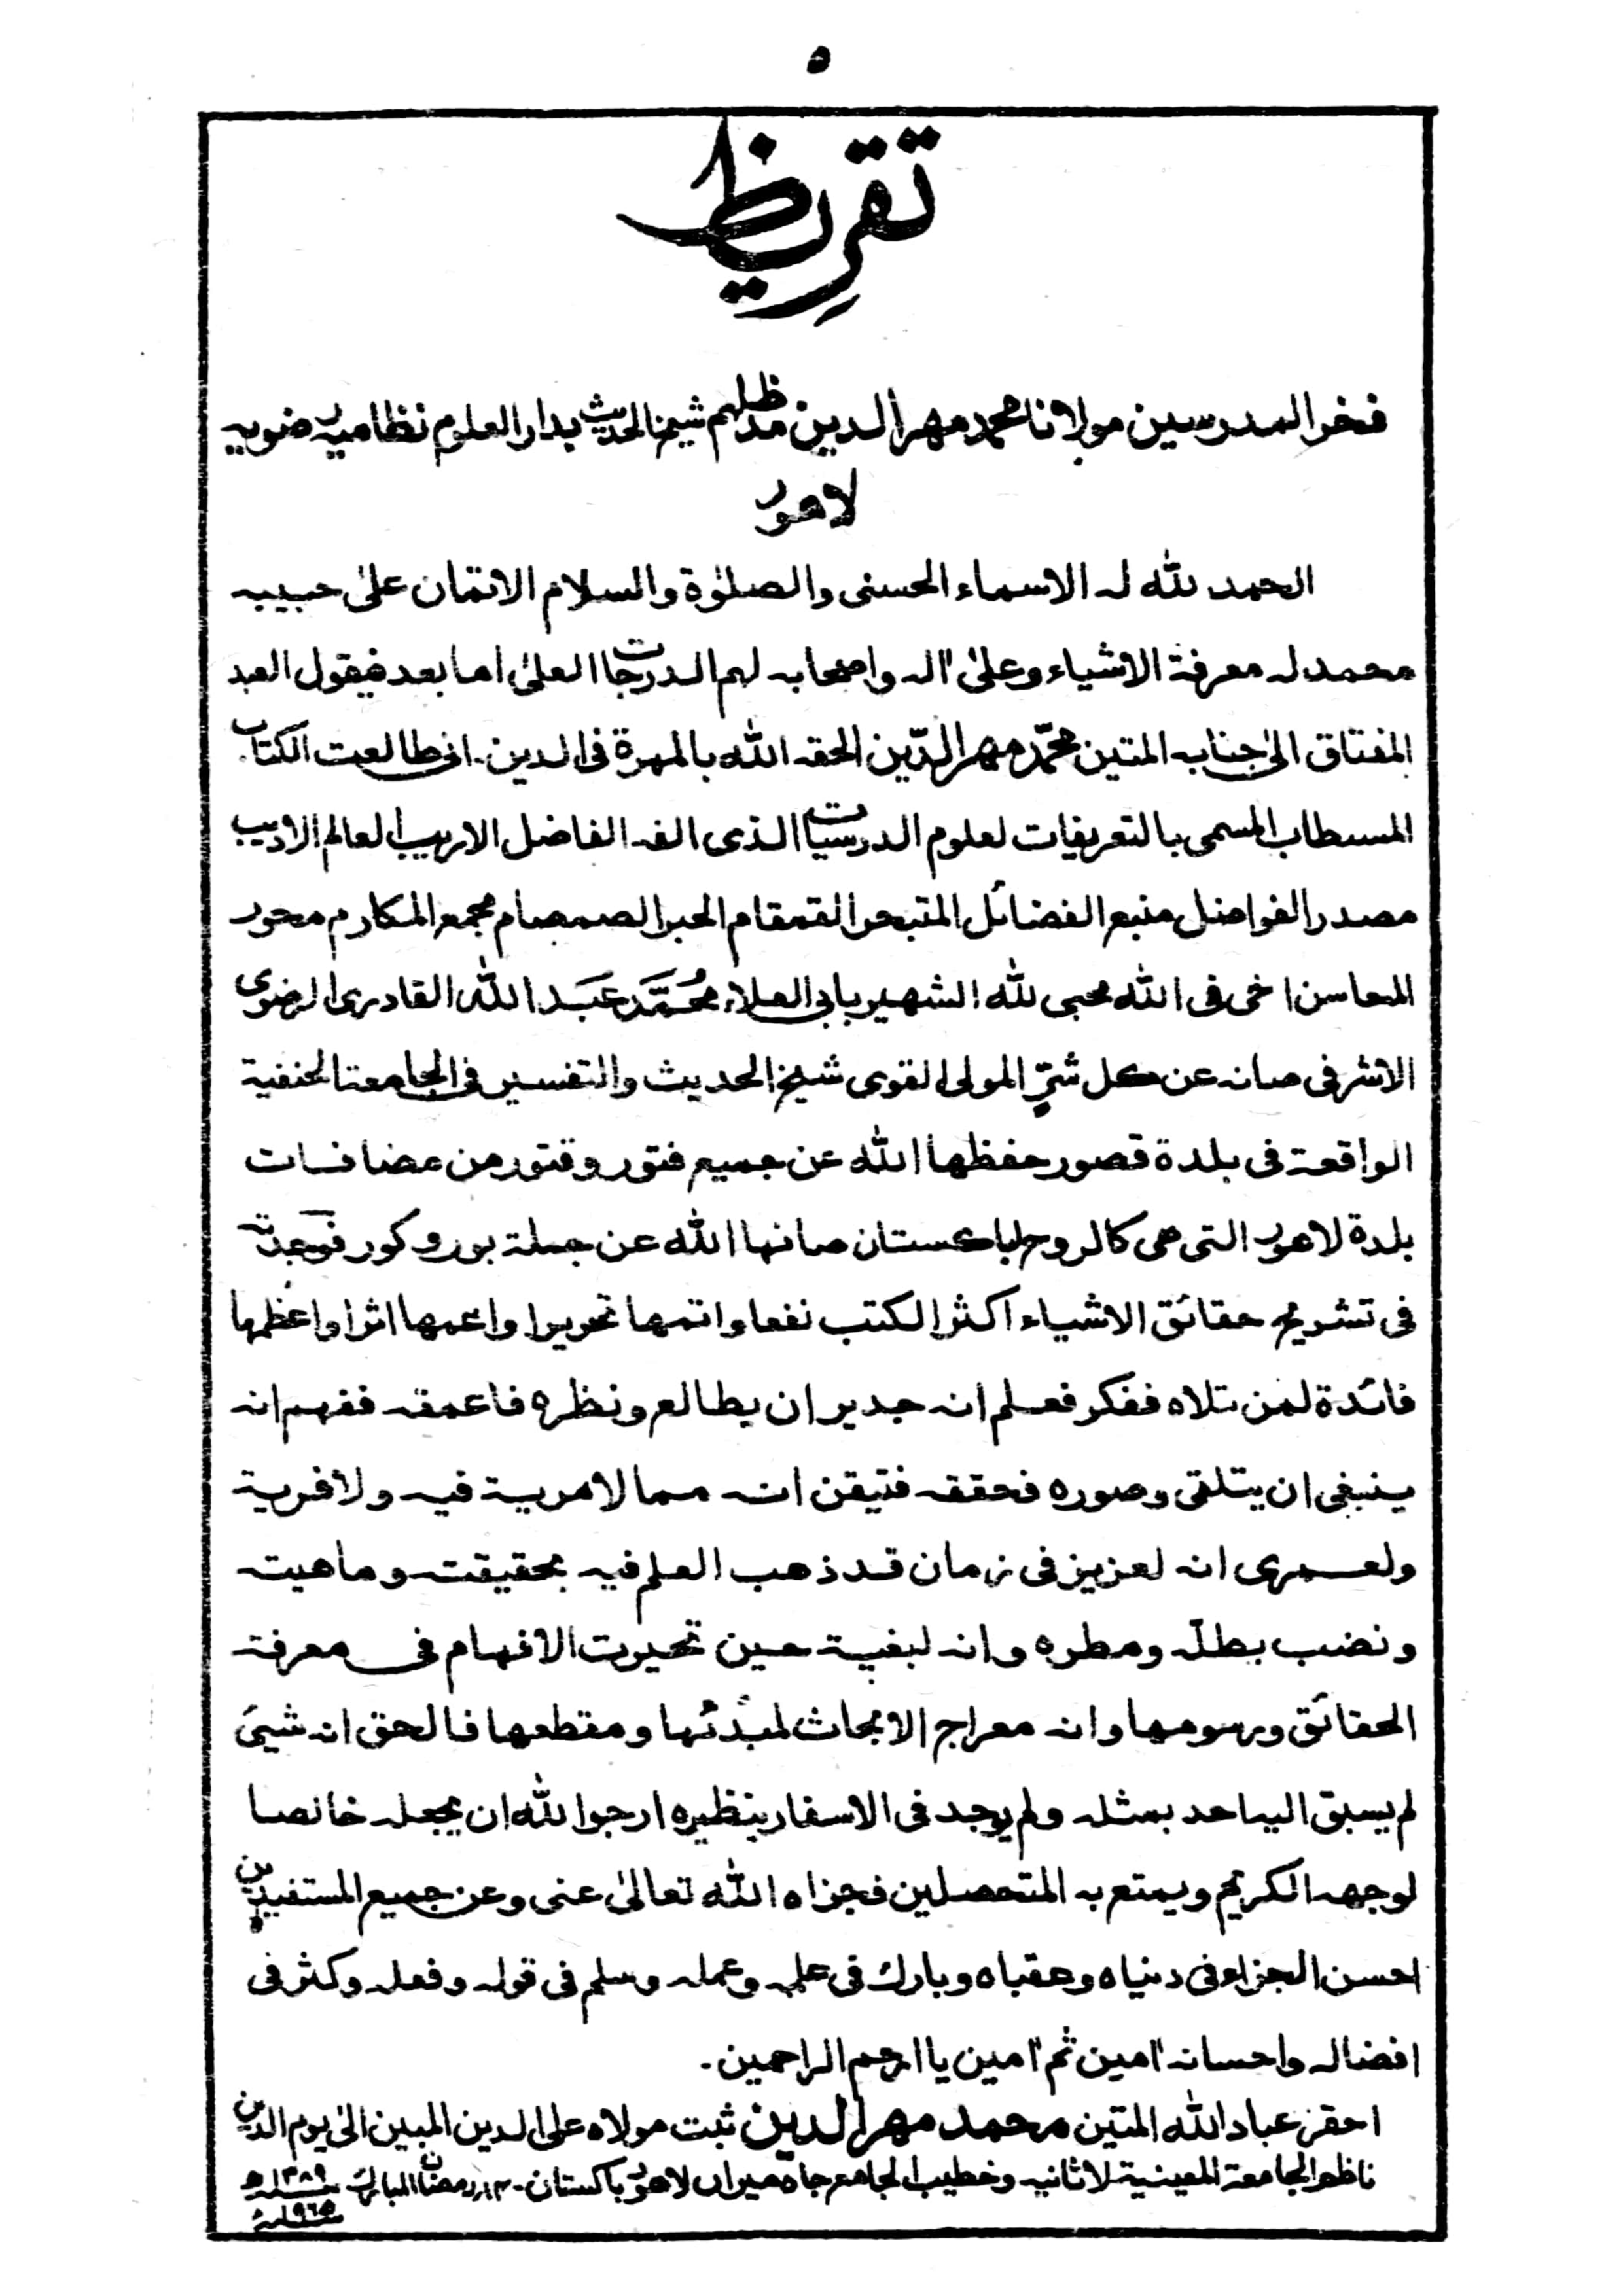 ۵
تقریظ
فخر المدرسین مولانا محمد مهر الدین مدظلهم شیخ الحدیث بدار العلوم نظامیه رضویه
لاهور
الحمد لله له الاسماء الحسنى والصلوٰة والسلام الاتمان علیٰ حبیبه
محمد له معرفة الاشیاء وعلیٰ اٰله واصحابه لهم الدرجات العلیٰ اما بعد فیقول العبد
المفتاق الیٰ جنابه المتین محمّد مهر الدّین الحقه الله بالمهرة فی الدین۔ انی طالعت الکتاب
المستطاب المسمى بالتعریفات لعلوم الدرسیات الذی الفه الفاضل الاریب العالم الادیب
مصدر الفواضل منبع الفضائل المتبحر القمقام الحبر الصمصام مجمع المکارم محور
المحاسن اخی فی الله محبی لله الشهیر بابی العلاء مُحَمَّد عَبد الله القادری الرضوی
الاشرفی صانه عن کل شرٍّ المولی القوی شیخ الحدیث والتفسیر فی الجامعة الحنفیة
الواقعة فی بلدة قصور حفظها الله عن جمیع فتور وقتور من مضافات
بلدة لاهور التی هی کالروح لباکستان صانها الله عن جملة بور وکور فوجدته
فی تشریح حقائق الاشیاء اکثر الکتب نفعا واتمها تحریرا واعمها اثرا واعظمها
فائدة لمن تلاه ففکر فعلم انه جدیر ان یطالع ونظره فاعمقه ففهم انه
ینبغی ان یتلقی وصوره فحققه فتیقن انه مما لا مریة فیه ولا فریة
ولعمری انه لعزیز فی زمان قد ذهب العلم فیه بحقیقته وماهیته
ونضب بطلّه ومطره وانه لبغیة حین تحیرت الافهام فی معرفة
الحقائق ورسومها وانه معراج الابحاث لمبدئها ومقطعها فالحق انه شیئ
لم یسبق الیه احد بمثله ولم یوجد فی الاسفار بنظیره ارجوا الله ان یجعله خالصا
لوجهه الکریم ویمتع به المتحصلین فجزاه الله تعالیٰ عنی وعن جمیع المستفیدین
احسن الجزاء فی دنیاه وعقباه وبارک فی علمه وعمله وسلم فی قوله وفعله وکثر فی
افضاله واحسانه اٰمین ثم اٰمین یا ارحم الراحمین۔
احقر عباد الله المتین محمد مهر الدین ثبت مولاه علی الدین المبین الیٰ یوم الدین
ناظم الجامعة المعینیة لاثانیه وخطیب الجامع جاه میراں لاهور باکستان۔ رمضان المبارک ۱۳۸۹ھ